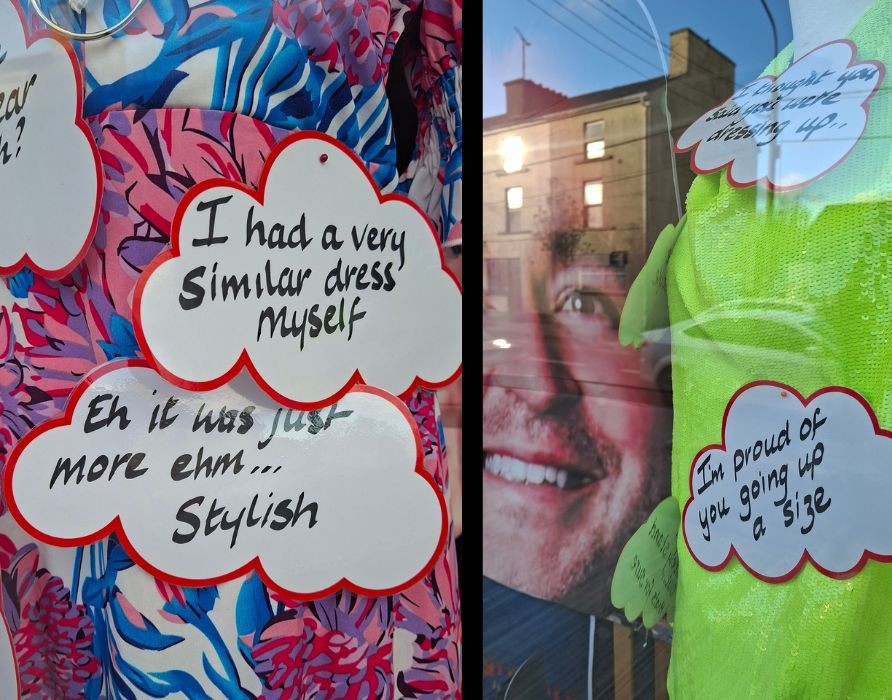 ear
h?
I had a very
Similar dress
Myself
Eh it was just
more ehm...
Stylish
I thought you
said you were
dressing up..
I'm proud of
you going up
a size